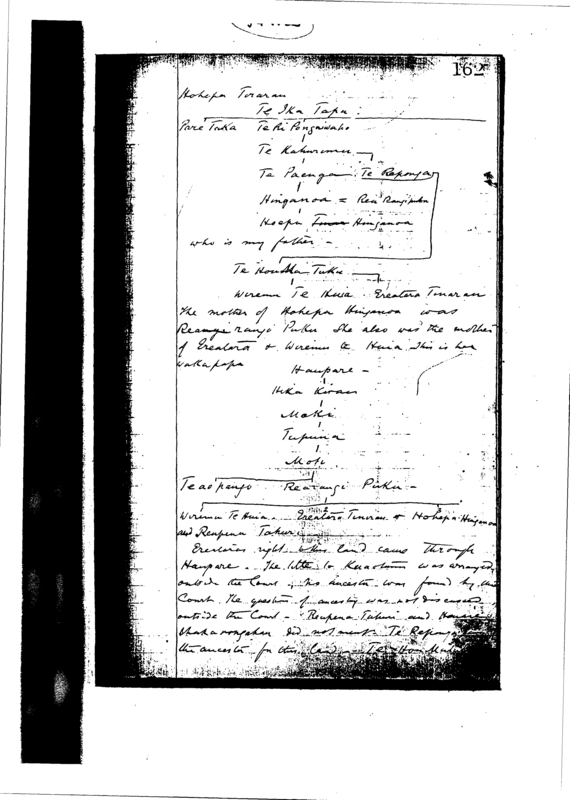 162
Hohepa Tinarau
Te Ika Tapu
Pare Tuka Te Ri Pongaiwaho
Te Kahurimu
Te Paenga Te Reponga
Hinganoa = Rea Rangipuku
Hoepa Hinganoa
who is my father -
Te Tuku
Wiremu Te Huia Ereatara Tinarau
The mother of Hohepa Hinganoa was
rangi Puku She also was the mother
of Ereatara & Wiremu te Huia This is her
wakapapa
Haupare -
Hika Kirau
Moki
Tupuna
Moti
Teaopango Rearangi Puku -
Wiremu Te Huia. Ereatara Tinirau & Hohepa Hinganoa
and Reupena Tahuri
right to this land came through
Haupare. The title to Kuaotunu was arranged
outside the Court, no ancestor was found by the
Court. The question of ancestry was not discussed
outside the Court - Reupena Tahuri and
did not ment Te Reponga
the ancestor for this land - Te